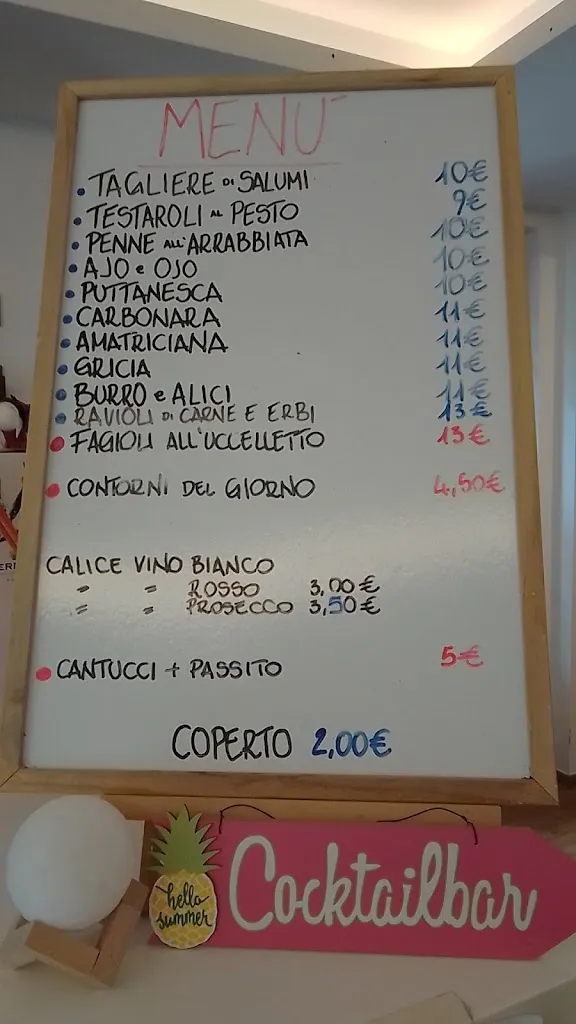 MENU'
• TAGLIERE DI SALUMI 10€
• TESTAROLI AL PESTO 9€
• PENNE ALL'ARRABBIATA 10€
• AJO e OJO 10€
• PUTTANESCA 10€
• CARBONARA 11€
• AMATRICIANA 11€
• GRICIA 11€
• BURRO e ALICI 11€
• RAVIOLI DI CARNE E ERBI 13€
• FAGIOLI ALL'UCCELLETTO 13€
• CONTORNI DEL GIORNO 4,50€
CALICE VINO BIANCO
" " ROSSO 3,00€
" " PROSECCO 3,50€
• CANTUCCI + PASSITO 5€
COPERTO 2,00€
hello
summer
Cocktailbar